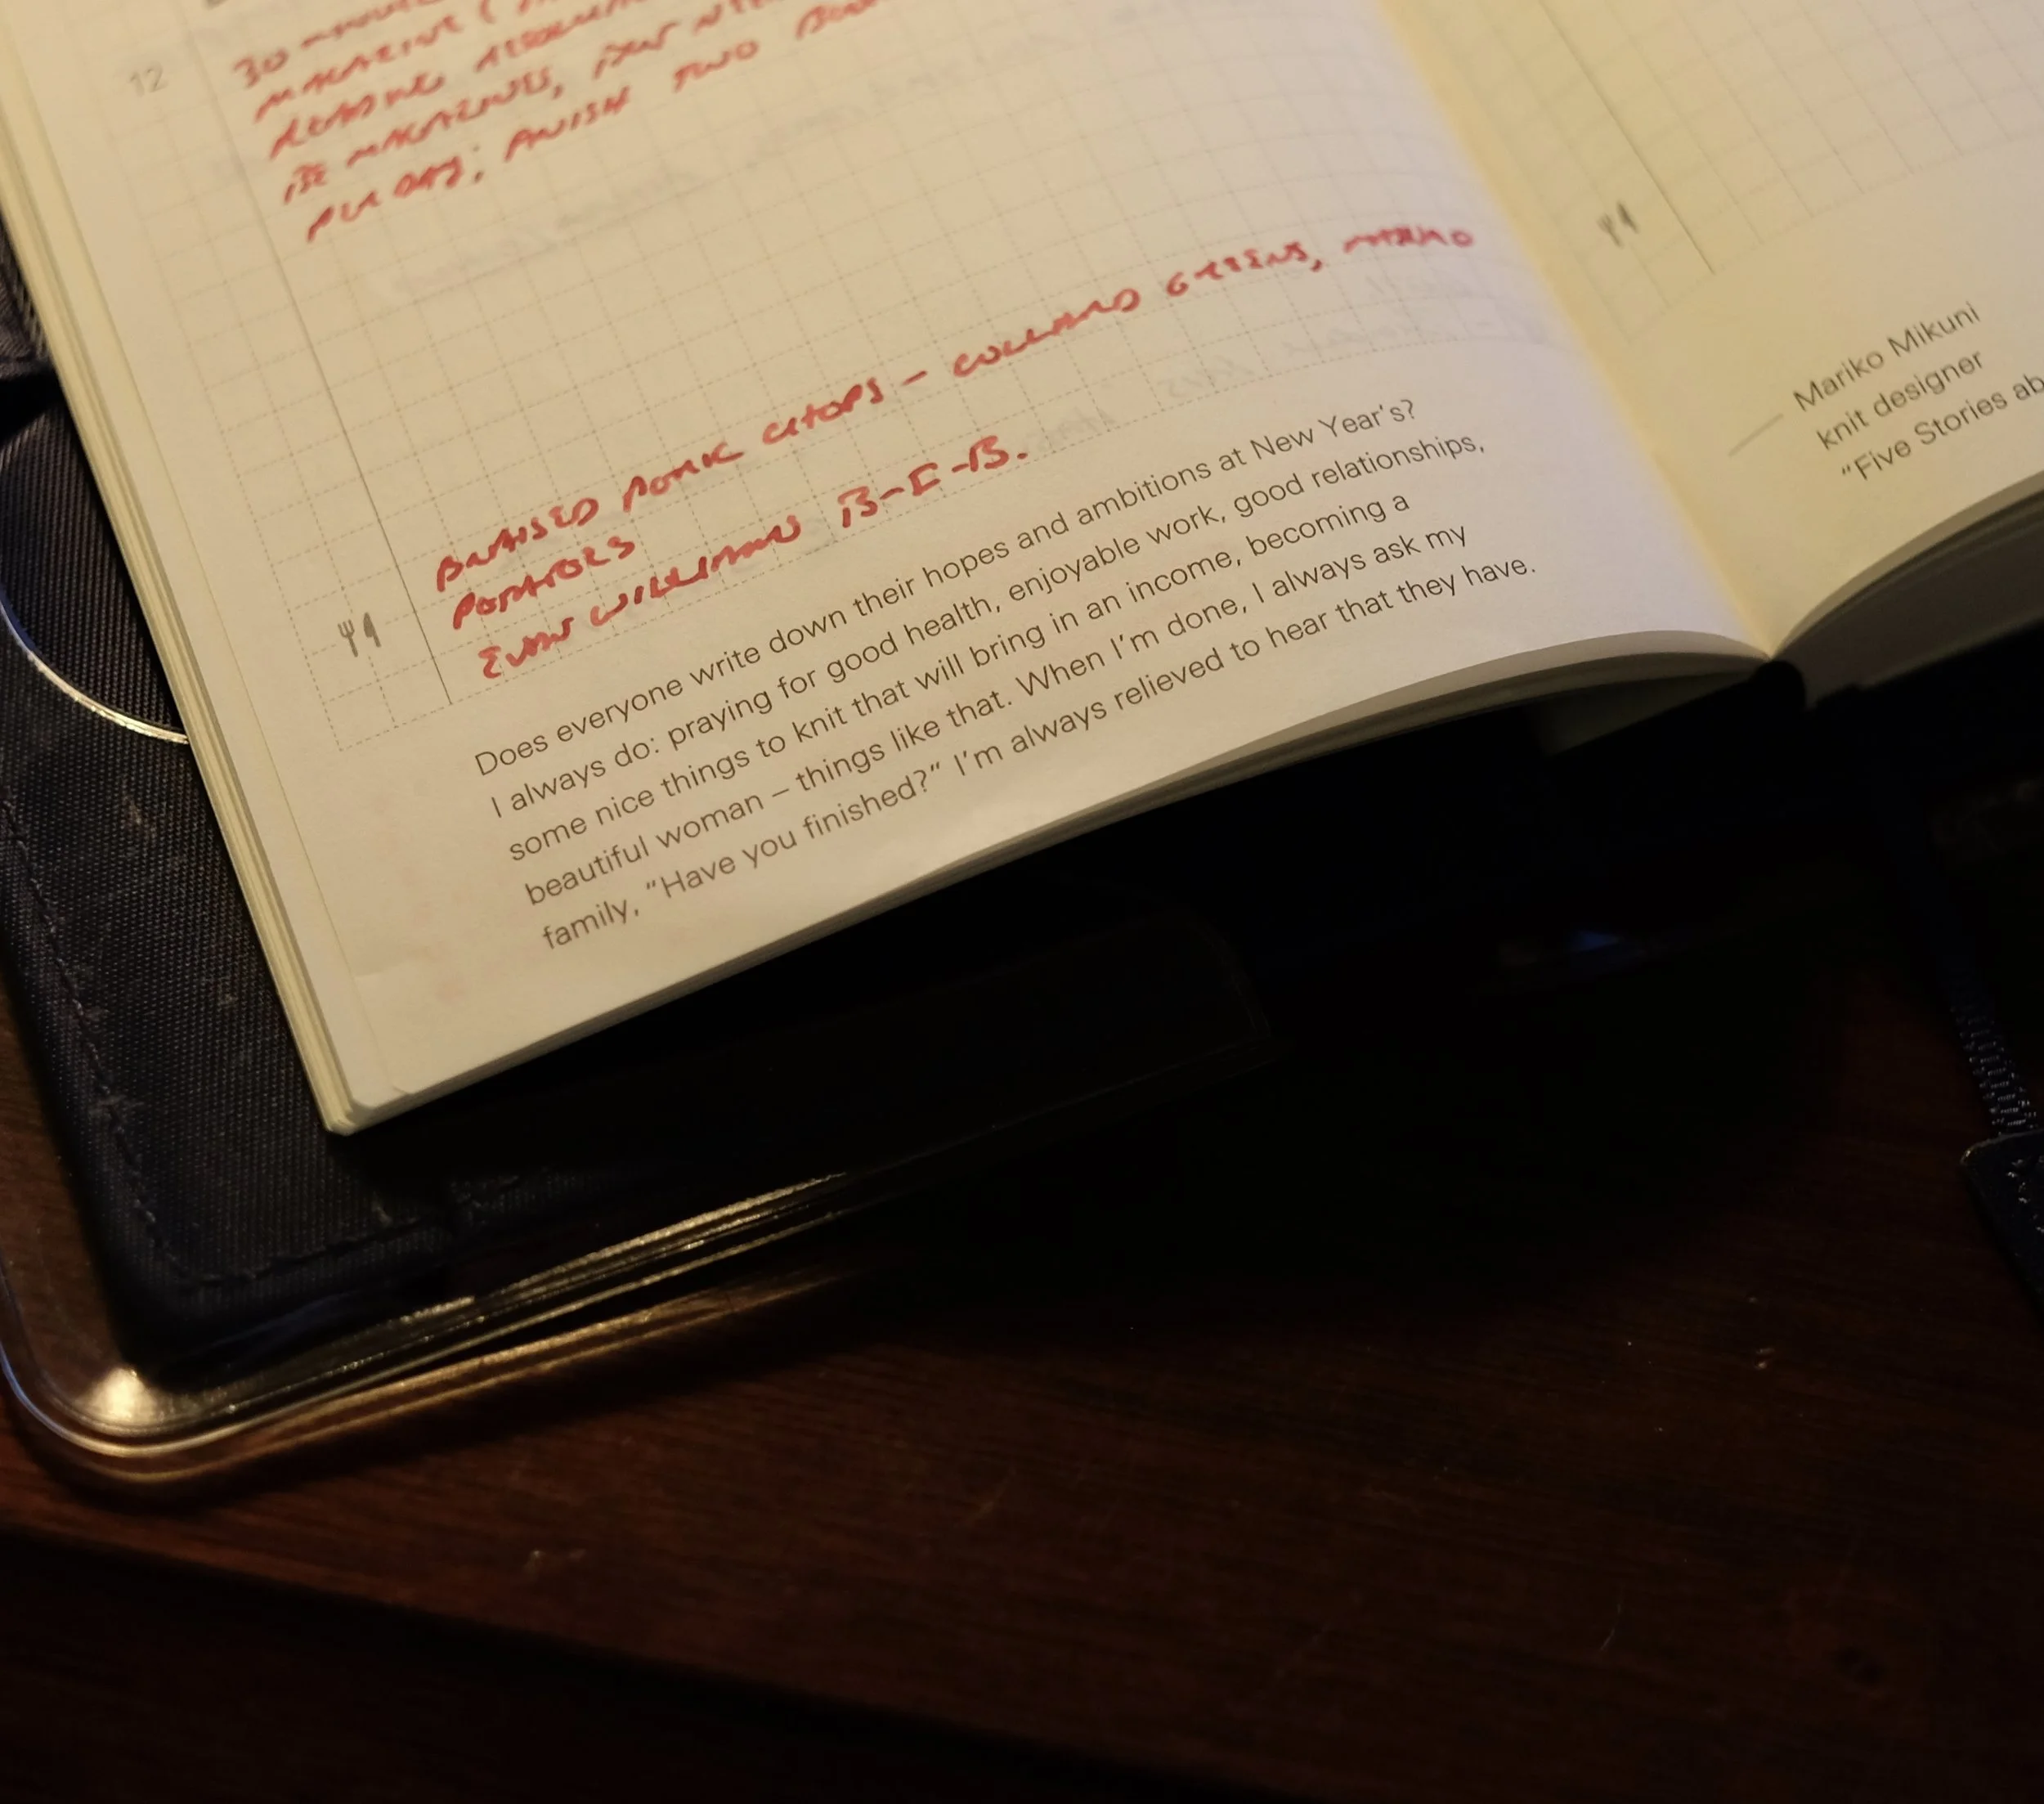 12
30
MAGAZINE (
READING
BE MAGAZINES, BUT
PER DAY; FINISH TWO
BRAISED PORK CHOPS – COLLARD GREENS, MASHED
POTATOES
EVAN WILLIAMS B-I-B.
Does everyone write down their hopes and ambitions at New Year's?
I always do: praying for good health, enjoyable work, good relationships,
some nice things to knit that will bring in an income, becoming a
beautiful woman – things like that. When I'm done, I always ask my
family, “Have you finished?” I'm always relieved to hear that they have.
Mariko Mikuni
knit designer
“Five Stories ab